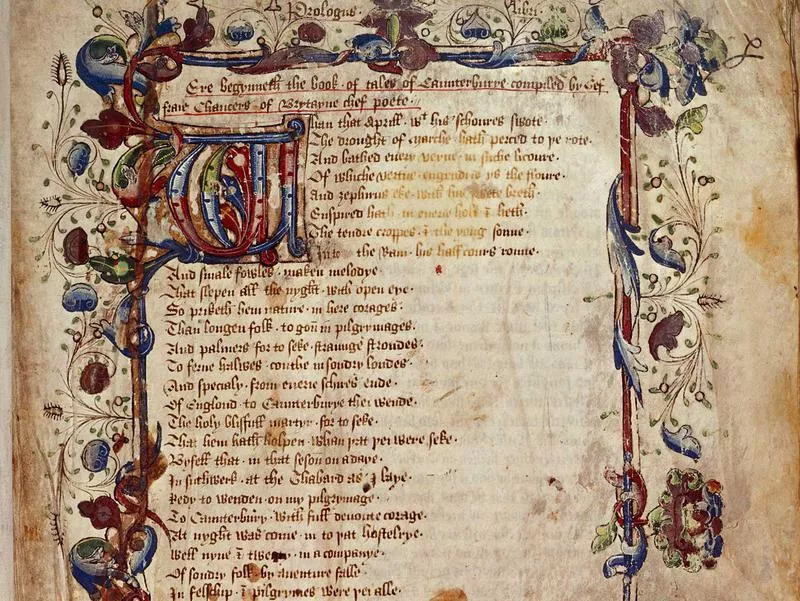 Prologus libri
Ere begynneth the book of tales of Caunterburye compiled by Gef
fraie Chaucers of Brytayne chef poete
Whan that Aprill wt his schoures swote
The drought of marche hath perced to ye rote
And bathed euery veyne in suche licoure
Of whiche vertue engendrid ys the floure
And zephirus eke with his swete breth
Enspired hath in euerie holt & heth
The tendre croppes & the yong sonne
Into the Ram his half cours ronne
And smale fowles maken melodye
That slepen all the nyght with open eye
So priketh hem nature in here corages
Than longen folk to gon in pilgrymages
And palmers for to seke straunge strondes
To ferne halwes couthe in soundry londes
And specialy from euerie schires ende
Of Englond to Caunterburye thei wende
The holy blisfull martyr for to seke
That hem hath holpen whan þat þei were seke
Byfell that in that seson on a daye
In suthwerk at the Thabard as I laye
Redy to wenden on my pilgrymage
To Caunterbury with full deuoute corage
At nyght was come in to þat hostelrye
Well nyne & twenty in a companye
Of soundry folk by auenture falle
In felschip & pilgrymes were þei alle